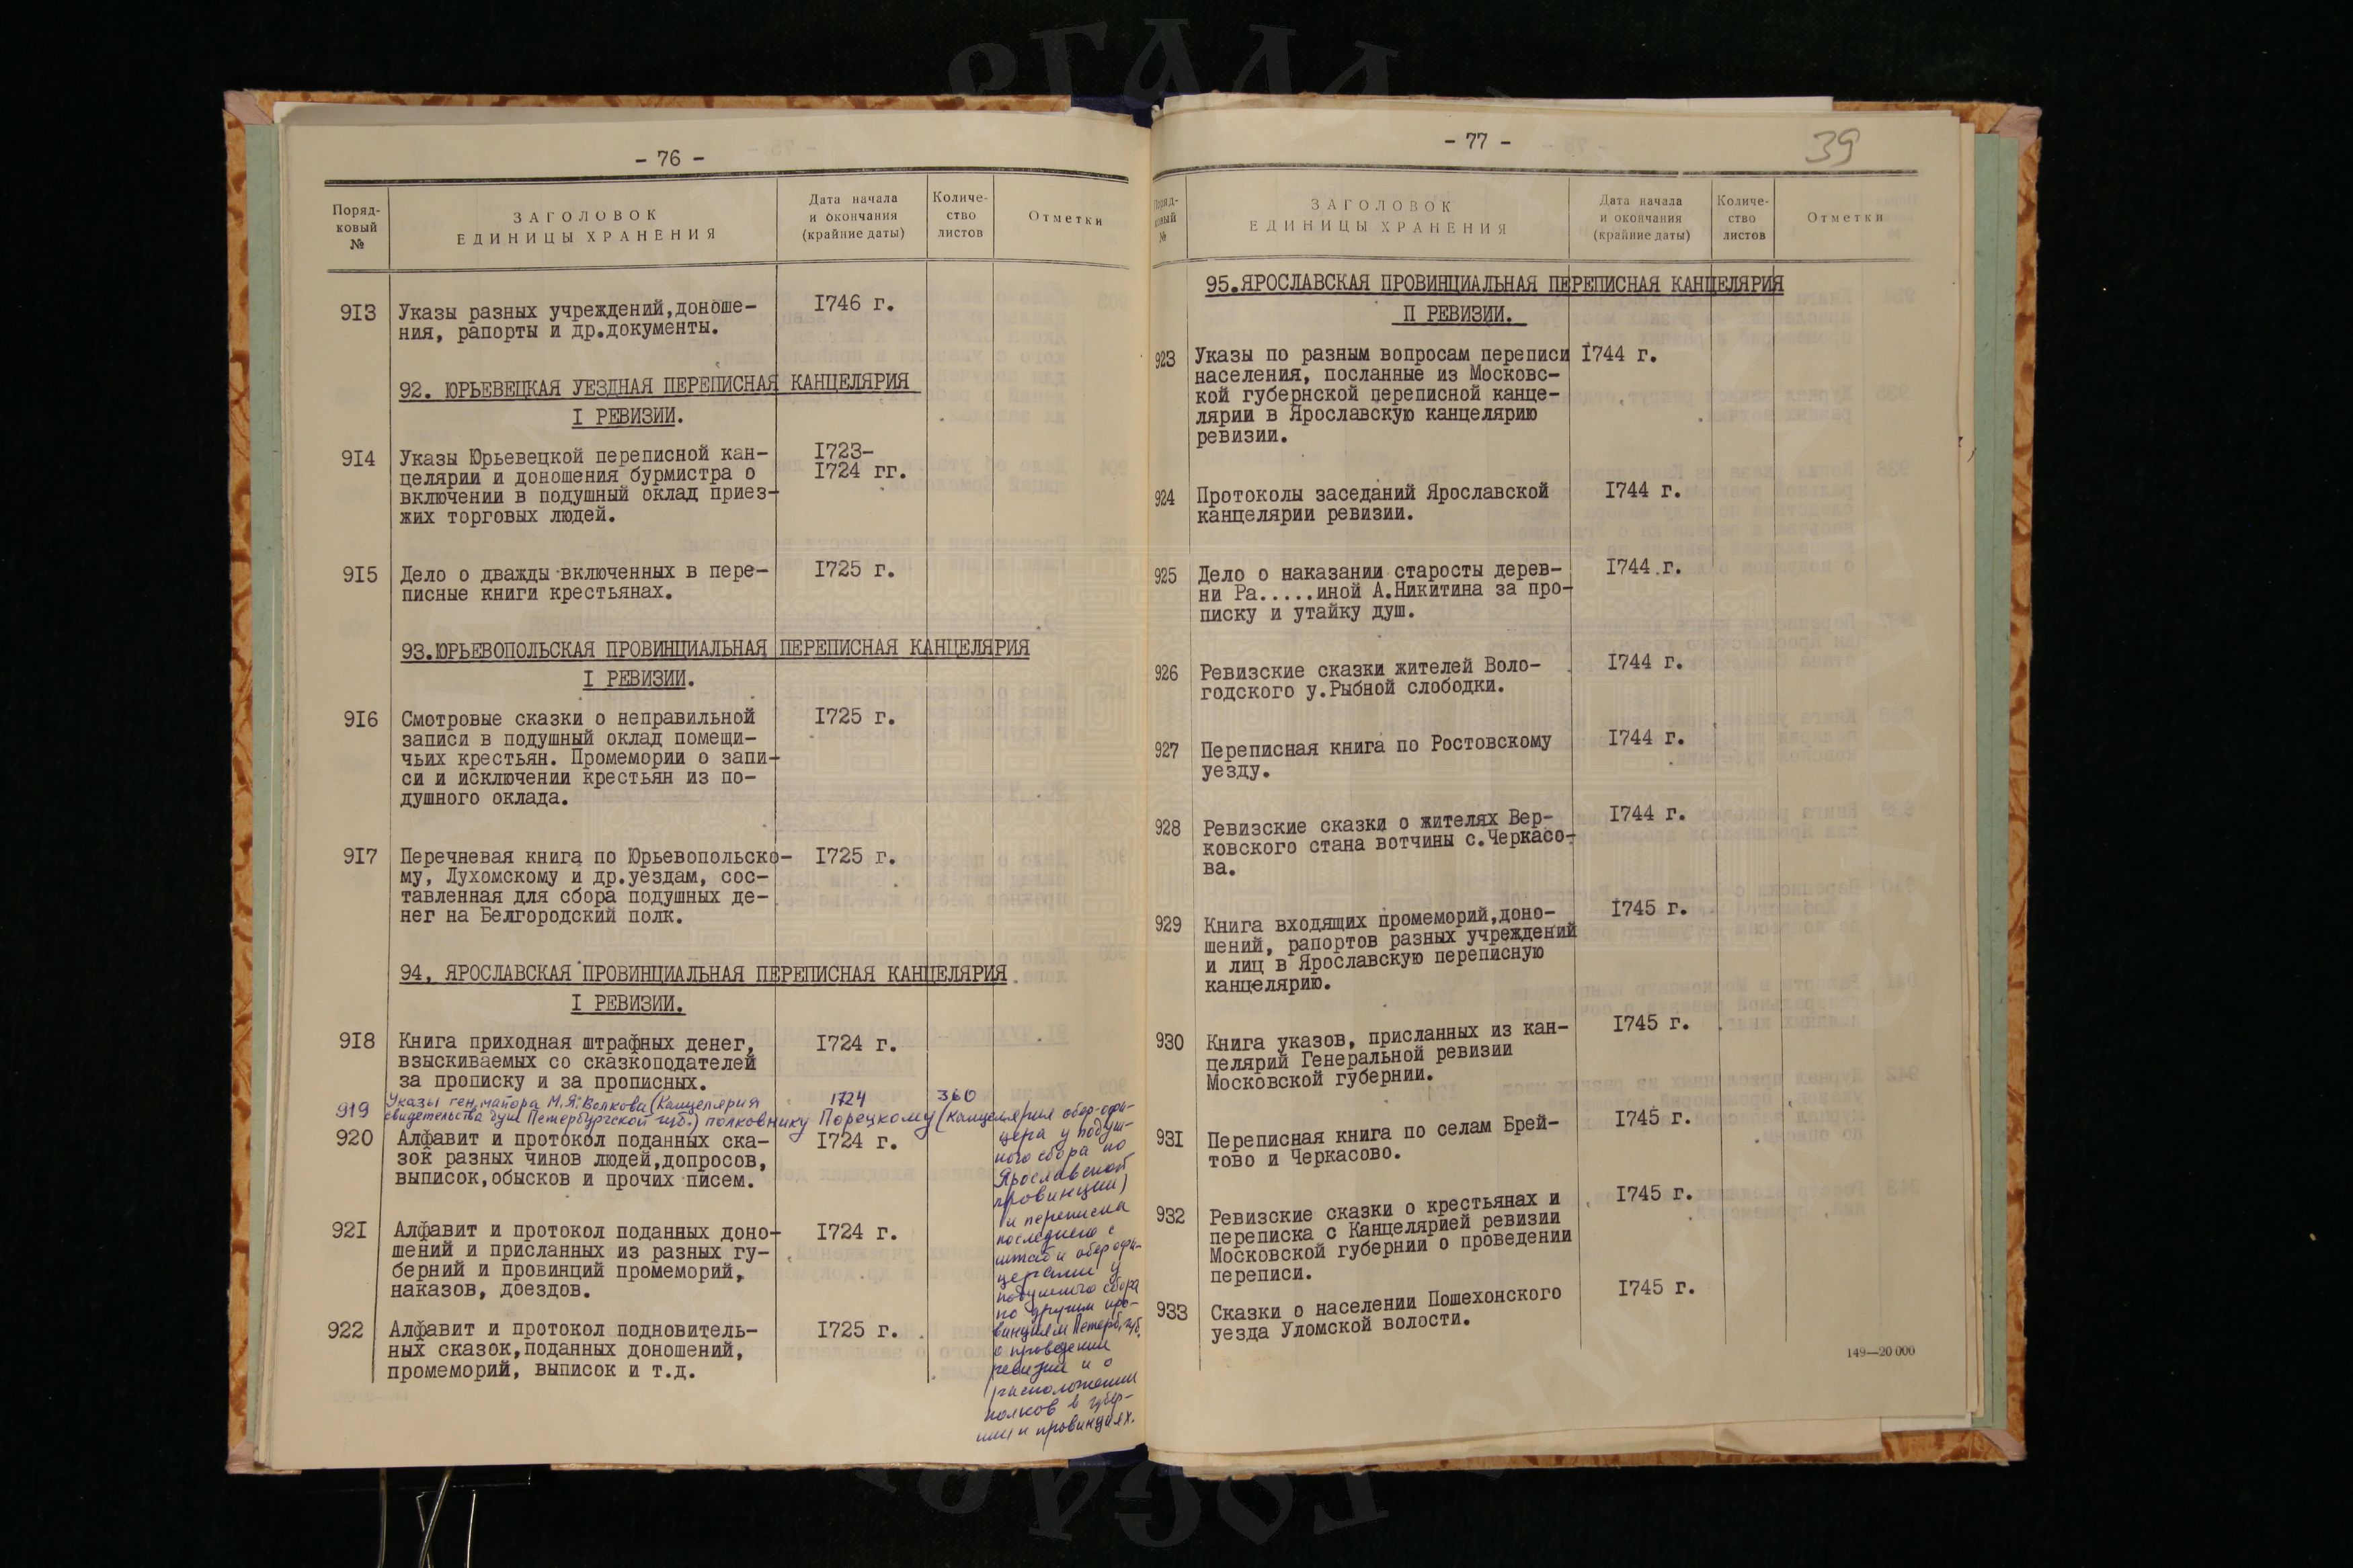 - 76 -
Поряд-
ковый
№
ЗАГОЛОВОК
ЕДИНИЦЫ ХРАНЕНИЯ
Дата начала
и окончания
(крайние даты)
Количе-
ство
листов
Отметки
913 Указы разных учреждений,доноше- 1746 г.
ния, рапорты и др.документы.
92. ЮРЬЕВЕЦКАЯ УЕЗДНАЯ ПЕРЕПИСНАЯ КАНЦЕЛЯРИЯ
I РЕВИЗИИ.
914 Указы Юрьевецкой переписной кан- 1723-
целярии и доношения бурмистра о 1724 гг.
включении в подушный оклад приез-
жих торговых людей.
915 Дело о дважды включенных в пере- 1725 г.
писные книги крестьянах.
93.ЮРЬЕВОПОЛЬСКАЯ ПРОВИНЦИАЛЬНАЯ ПЕРЕПИСНАЯ КАНЦЕЛЯРИЯ
I РЕВИЗИИ.
916 Смотровые сказки о неправильной 1725 г.
записи в подушный оклад помещи-
чьих крестьян. Промемории о запи-
си и исключении крестьян из по-
душного оклада.
917 Перечневая книга по Юрьевопольско- 1725 г.
му, Лухомскому и др.уездам, сос-
тавленная для сбора подушных де-
нег на Белгородский полк.
94. ЯРОСЛАВСКАЯ ПРОВИНЦИАЛЬНАЯ ПЕРЕПИСНАЯ КАНЦЕЛЯРИЯ
I РЕВИЗИИ.
918 Книга приходная штрафных денег, 1724 г.
взыскиваемых со сказкоподателей
за прописку и за прописных.
919 Указы ген. майора М.Я. Волкова (Канцелярия 1724 360
свидетельства душ Петербургской губ.) полковнику Порецкому (канцелярия обер-офи-
цера у подуш-
ного сбора по
Ярославской
провинции)
и переписка
последнего с
штаб и обер офи-
церами у
подушного сбора
по другим про-
винциям Петерб. губ.
о проведении
ревизии и о
расположении
полков в губер-
нии и провинциях.
920 Алфавит и протокол поданных ска- 1724 г.
зок разных чинов людей,допросов,
выписок,обысков и прочих писем.
921 Алфавит и протокол поданных доно- 1724 г.
шений и присланных из разных гу-
берний и провинций промеморий,
наказов, доездов.
922 Алфавит и протокол подновитель- 1725 г.
ных сказок,поданных доношений,
промеморий, выписок и т.д.
- 77 -
39
Поряд-
ковый
№
ЗАГОЛОВОК
ЕДИНИЦЫ ХРАНЕНИЯ
Дата начала
и окончания
(крайние даты)
Количе-
ство
листов
Отметки
95.ЯРОСЛАВСКАЯ ПРОВИНЦИАЛЬНАЯ ПЕРЕПИСНАЯ КАНЦЕЛЯРИЯ
П РЕВИЗИИ.
923 Указы по разным вопросам переписи 1744 г.
населения, посланные из Московс-
кой губернской переписной канце-
лярии в Ярославскую канцелярию
ревизии.
924 Протоколы заседаний Ярославской 1744 г.
канцелярии ревизии.
925 Дело о наказании старосты дерев- 1744 г.
ни Ра.....иной А.Никитина за про-
писку и утайку душ.
926 Ревизские сказки жителей Воло- 1744 г.
годского у.Рыбной слободки.
927 Переписная книга по Ростовскому 1744 г.
уезду.
928 Ревизские сказки о жителях Вер- 1744 г.
ковского стана вотчины с.Черкасо-
ва.
929 Книга входящих промеморий,доно- 1745 г.
шений, рапортов разных учреждений
и лиц в Ярославскую переписную
канцелярию.
930 Книга указов, присланных из кан- 1745 г.
целярий Генеральной ревизии
Московской губернии.
931 Переписная книга по селам Брей- 1745 г.
тово и Черкасово.
932 Ревизские сказки о крестьянах и 1745 г.
переписка с Канцелярией ревизии
Московской губернии о проведении
переписи.
933 Сказки о населении Пошехонского 1745 г.
уезда Уломской волости.
149—20 000